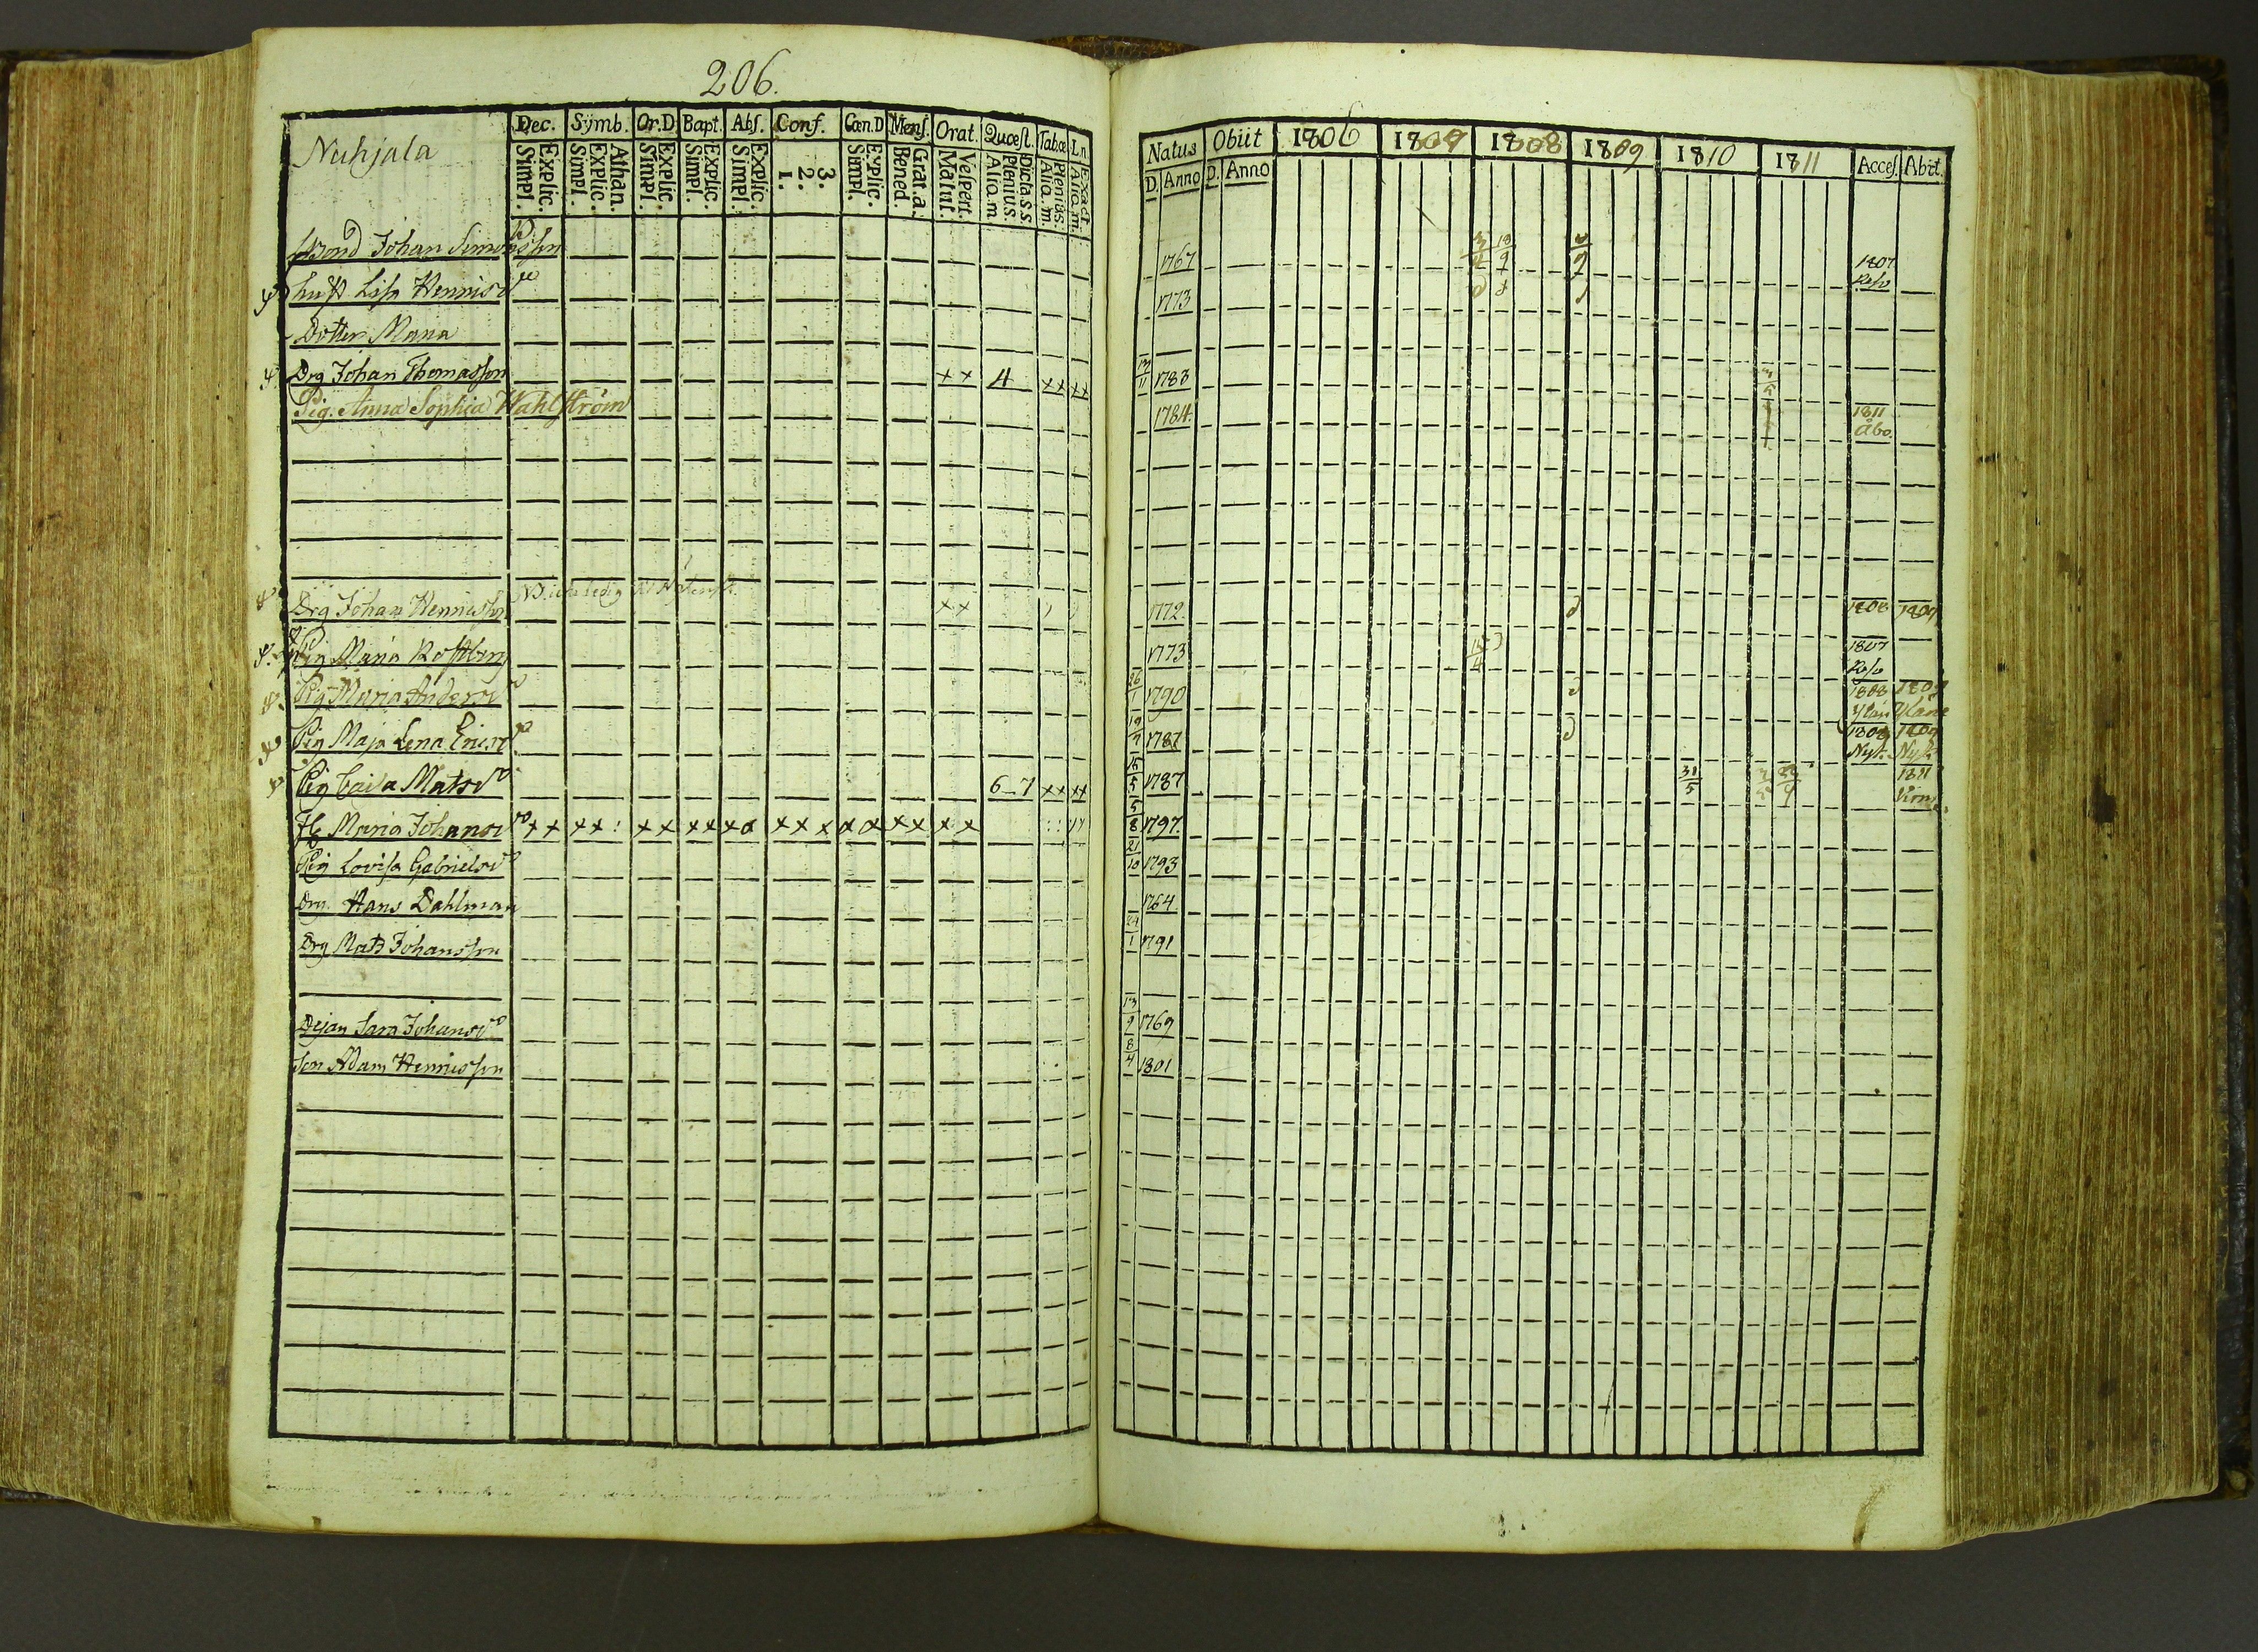 206.
Nuhjala
Dec. Symb. Or.D Bapt. Abs. Conf. Cœn.D Mens. Orat. Quœst. Tabœ Ln
Explic. Simpl. Athan. Explic. Simpl. Explic. Simpl. Explic. Simpl. Explic. Simpl. 3. 2. 1. Explic. Simpl. Grat.a. Bened. Vespert. Matut. Dicta.s.s. Plenius. Alio.m. Plenias. Alio.m. Exact. Alio.m.
Natus Obiit 1806 1807 1808 1809 1810 1811 Acces. Abit.
D. Anno D. Anno
Johan Simonsson 1767 1807
Lisa 1773
Dotter Maria
Drg Johan Thomasson ×× 4 ×× ×× 13/11 1783
Pig. Anna Sophia Wahlström 1784. 1811 Åbo
Drg Johan Hennisson ×× 1772. 1808 1809
Pig Maria 1773 1807
Pig Maria Andersd 26/1 1790 1808 1809
Pig Maja Lena Ericsd 19/7 1787 1809 1809
Pig Caisa Matsd 6-7 ×× ×× 15/5 1787 31/5 1811
Maria Johansd ×× ××: ×× ×× ×α ××× αα ×× ×× 5/8 1797.
Pig Lovisa Gabrielsd 21/10 1793
Drg. Hans Dahlman 1764
Drg Mats Johansson 24/1 1791
Dejan Sara Johansd 13/9 1769
Son Adam Hennisson 8/4 1801